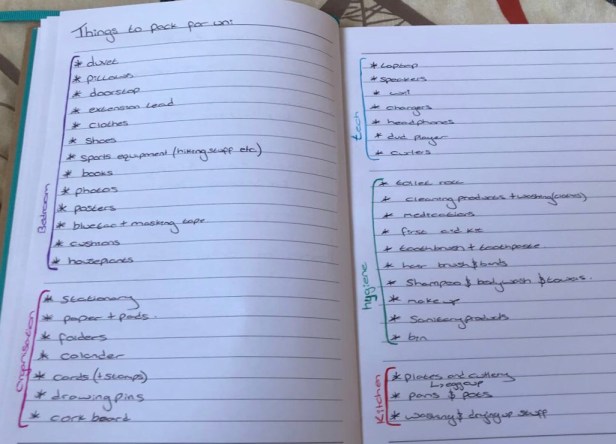 Things to pack for uni:
Bedroom
* duvet
* pillows
* doorstop
* extension lead
* clothes
* shoes
* sports equipment (hiking stuff etc)
* books
* photos
* posters
* bluetac + masking tape
* cushions
* houseplants
organisation
* stationary
* paper + pads.
* folders
* calander
* cards (+ stamps)
* drawing pins
* cork board
tech
* laptop
* speakers
*
* chargers
* headphones
* dvd player
* curlers
hygiene
* toilet roll
* cleaning products + washing (clothes)
* medications
* first aid kit
* toothbrush + toothpaste
* hair brush & bands
* Shampoo & bodywash & towels.
* make up
* Sanitary products
* bin
Kitchen
* plates and cutlery
* pans & pots
* washing & drying up stuff